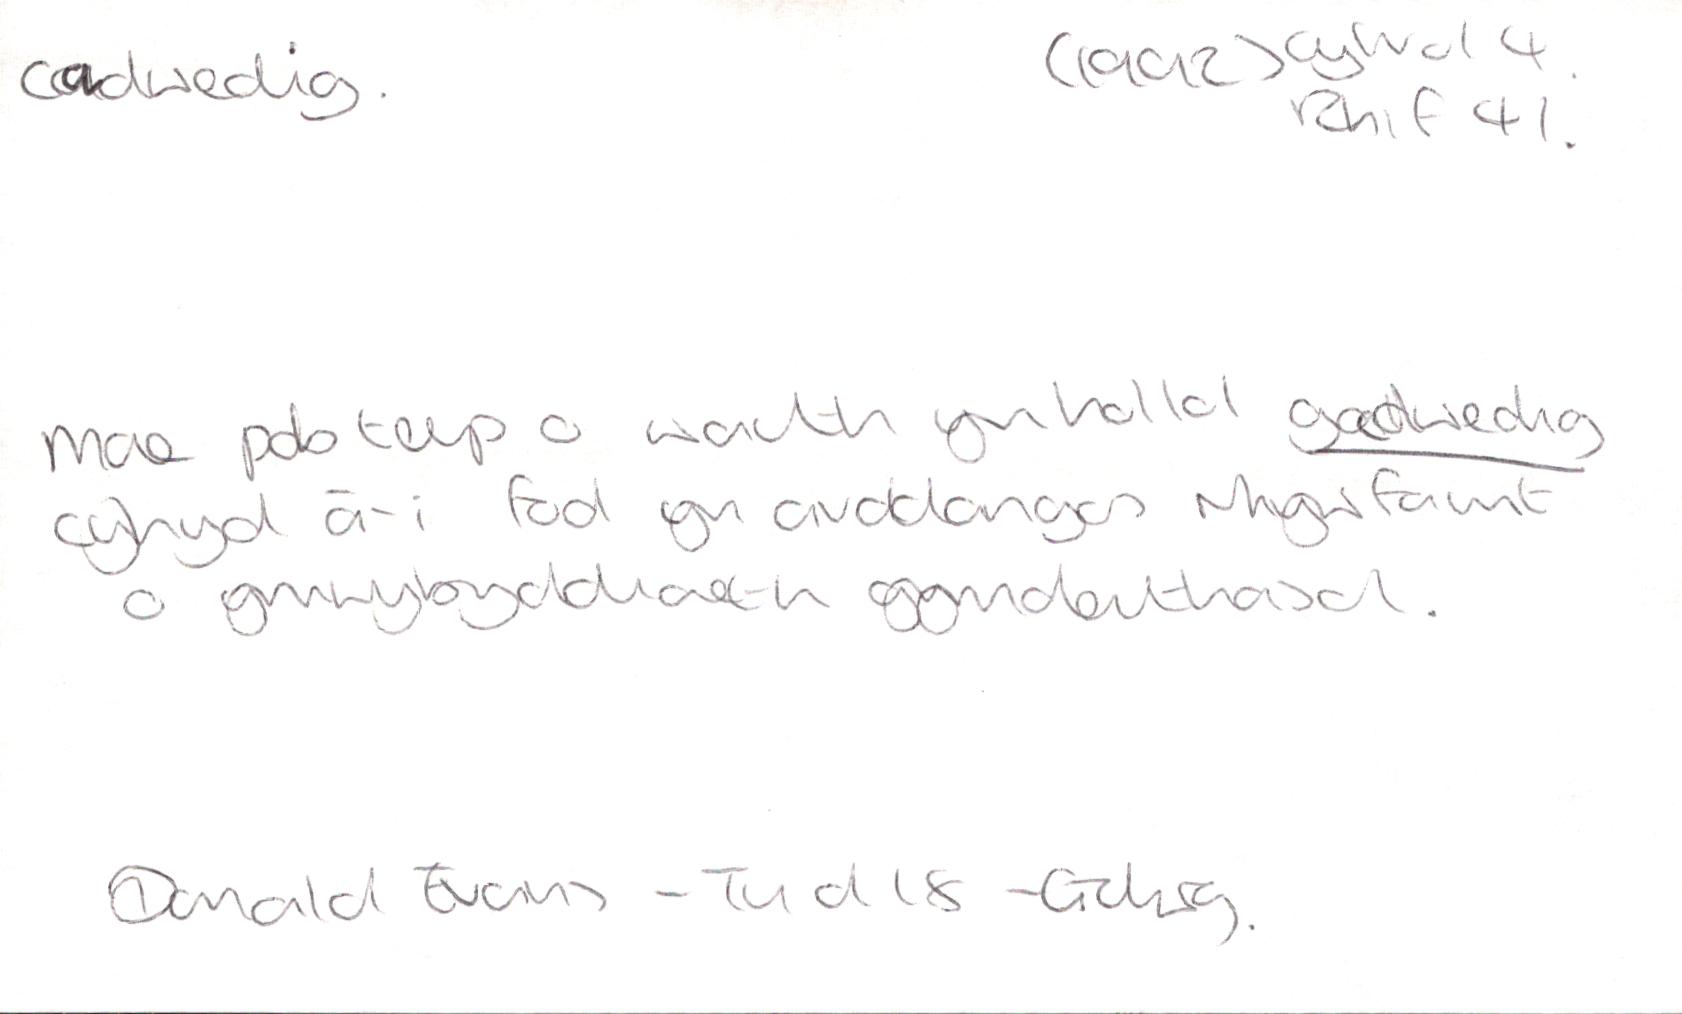 cadwedig.
(1992) Cyfrol 4.
Rhif 41.
Mae pob terp o waith yn hollol gadwedig
cyhyd â'i fod yn arddangos rhyw faint
o ymwybyddiaeth gynderthasol.
Donald Evans - Tud 18 -